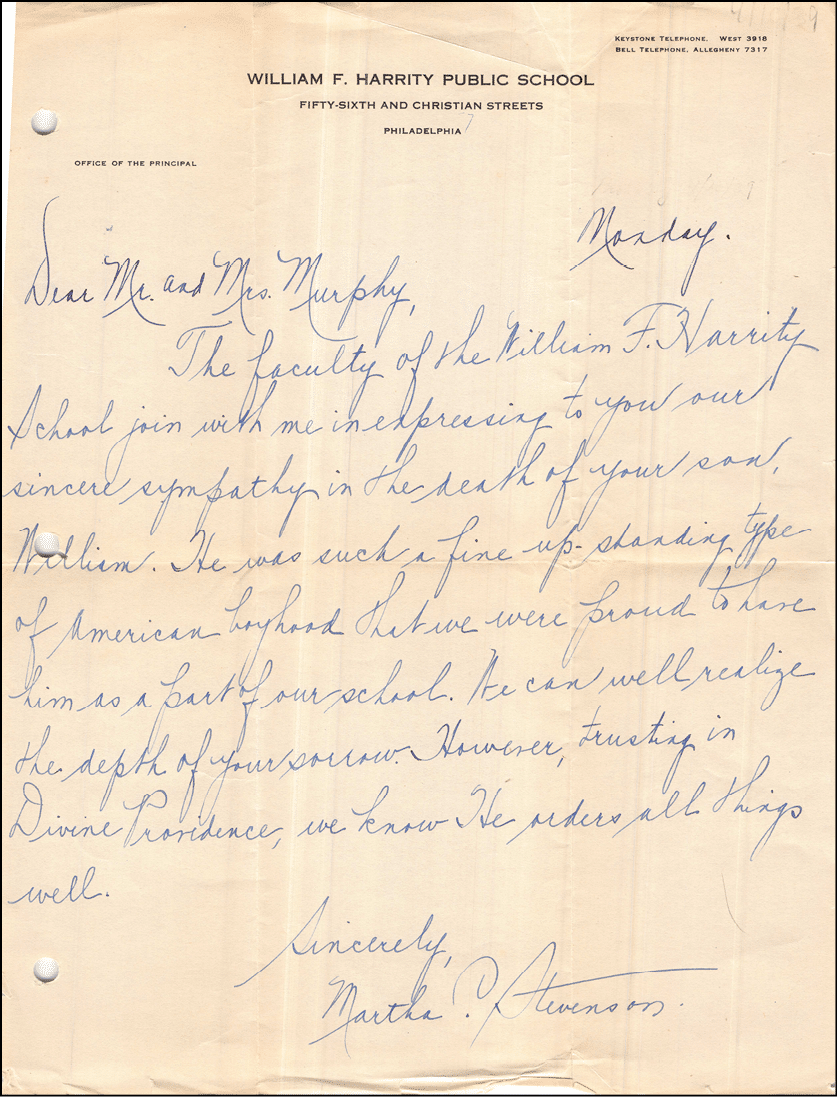 KEYSTONE TELEPHONE, WEST 3918
BELL TELEPHONE, ALLEGHENY 7317
WILLIAM F. HARRITY PUBLIC SCHOOL
FIFTY-SIXTH AND CHRISTIAN STREETS
PHILADELPHIA
OFFICE OF THE PRINCIPAL
Monday.
Dear Mr. and Mrs. Murphy,
The faculty of the William F. Harrity
School join with me in expressing to you our
sincere sympathy in the death of your son,
William. He was such a fine up-standing type
of American boyhood that we were proud to have
him as a part of our school. We can well realize
the depth of your sorrow. However, trusting in
Divine Providence, we know He orders all things
well.
Sincerely,
Martha P. Stevenson.